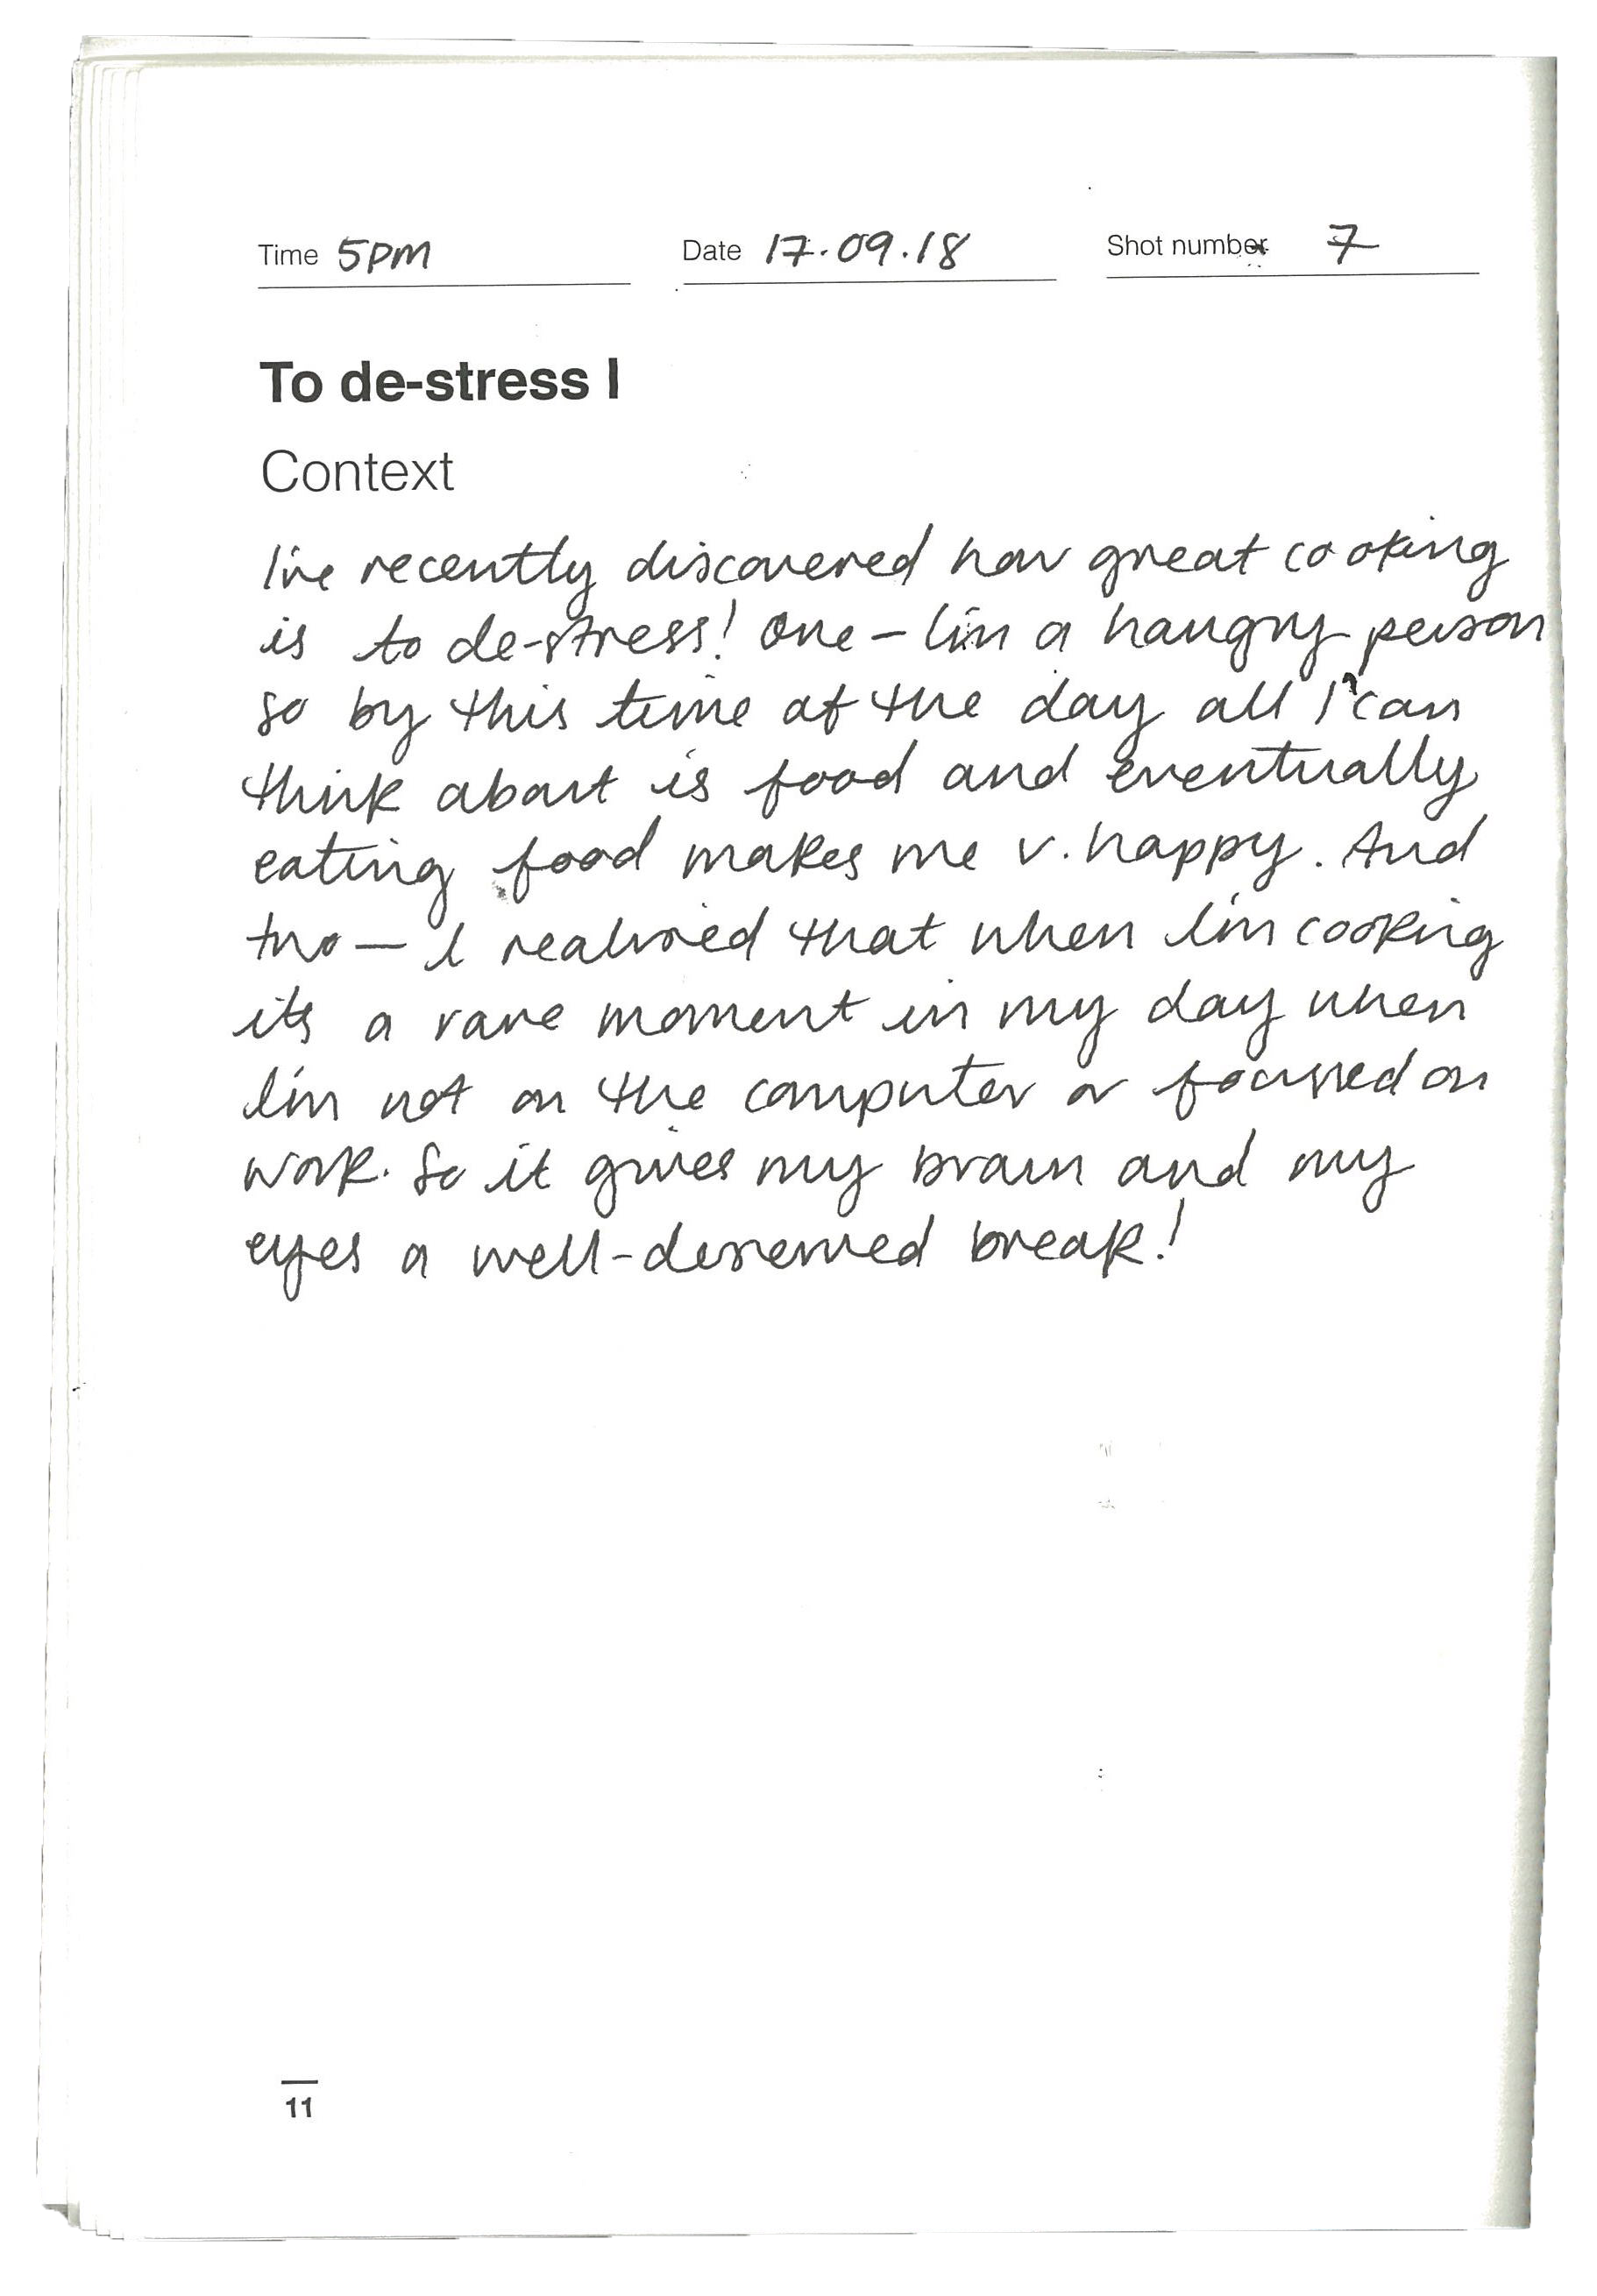 Time 5PM Date 17.09.18 Shot number 7
To de-stress I
Context
I've recently discovered how great cooking
is to de-stress! One – I'm a haungry person
so by this time of the day all I can
think about is food and eventually
eating food makes me v. happy. And
two – I realised that when I'm cooking
it's a rare moment in my day when
I'm not on the computer or focussed on
work. So it gives my brain and my
eyes a well-deserved break!
11